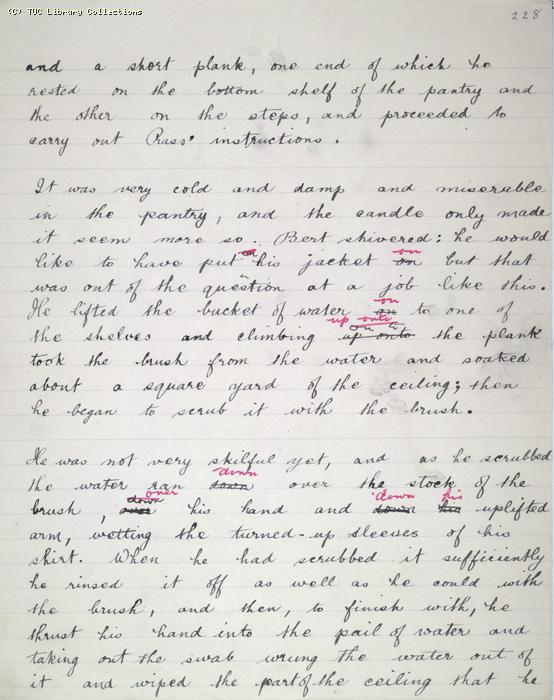 (C) TUC Library Collections
228
and a short plank, one end of which he
rested on the bottom shelf of the pantry and
the other on the steps, and proceeded to
carry out Crass' instructions.
It was very cold and damp and miserable
in the pantry, and the candle only made
it seem more so. Bert shivered: he would
on
like to have put his jacket on but that
was out of the question at a job like this.
on
He lifted the bucket of water on to one of
up onto
the shelves and climbing up onto the plank
took the brush from the water and soaked
about a square yard of the ceiling; then
he began to scrub it with the brush.
He was not very skilful yet, and as he scrubbed
down
the water ran down over the stock of the
over down his
brush, over his hand and down his uplifted
arm, wetting the turned-up sleeves of his
shirt. When he had scrubbed it sufficiently
he rinsed it off as well as he could with
the brush, and then, to finish with, he
thrust his hand into the pail of water and
taking out the swab wrung the water out of
it and wiped the part of the ceiling that he